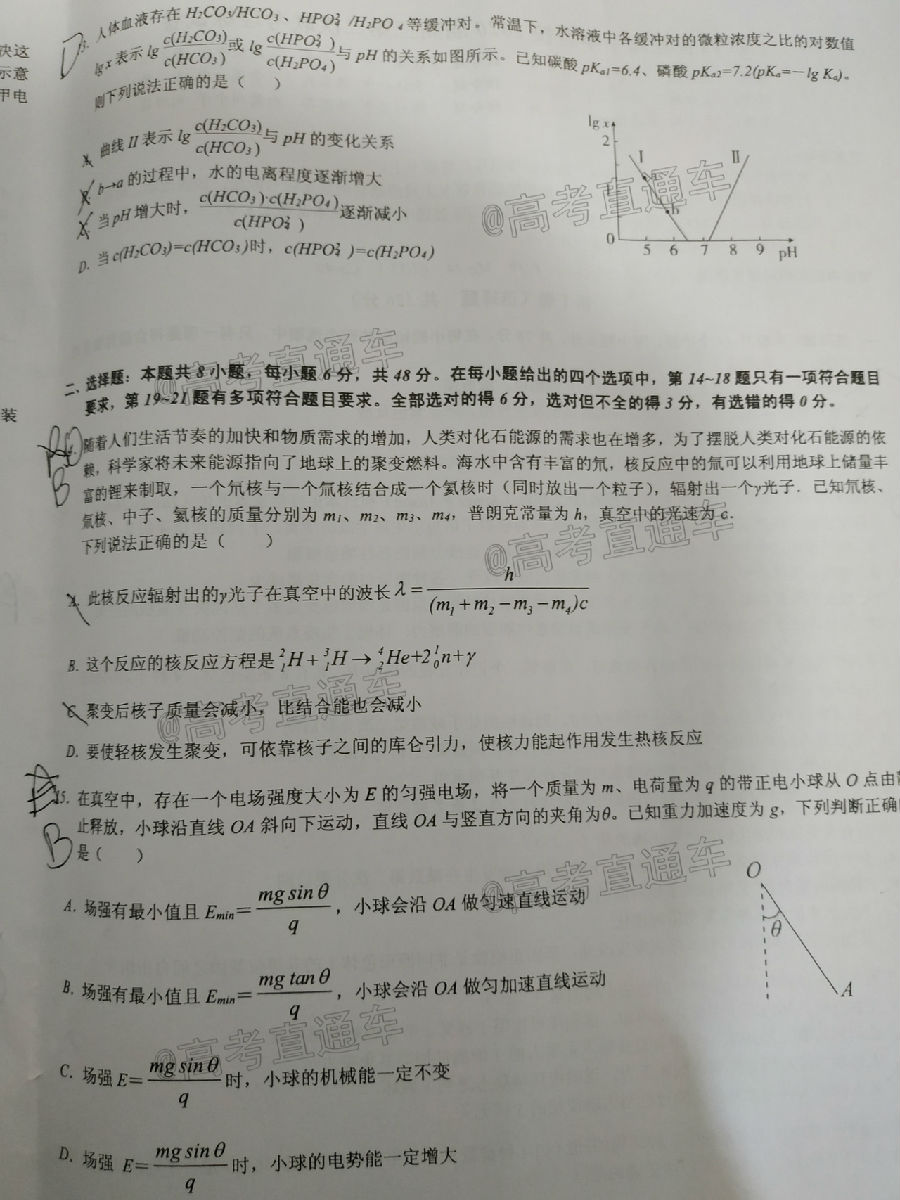 人体血液存在 H₂CO₃/HCO₃⁻、HPO₄²⁻/H₂PO₄⁻等缓冲对。常温下，水溶液中各缓冲对的微粒浓度之比的对数值
lg x 表示 lg c(H₂CO₃)/c(HCO₃⁻) 或 lg c(HPO₄²⁻)/c(H₂PO₄⁻) 与 pH 的关系如图所示。已知碳酸 pKa1=6.4、磷酸 pKa2=7.2(pKa=－lg Ka)。
则下列说法正确的是（ ）
曲线 II 表示 lg c(H₂CO₃)/c(HCO₃⁻) 与 pH 的变化关系
b→a 的过程中，水的电离程度逐渐增大
当 pH 增大时，c(HCO₃⁻)·c(H₂PO₄⁻)/c(HPO₄²⁻) 逐渐减小
D. 当 c(H₂CO₃)=c(HCO₃⁻)时，c(HPO₄²⁻)=c(H₂PO₄⁻)
lg x
2
I
II
a
1
b
0
5 6 7 8 9 pH
决这
示意
甲电
装
二、选择题：本题共 8 小题，每小题 6 分，共 48 分。在每小题给出的四个选项中，第 14~18 题只有一项符合题目
要求，第 19~21 题有多项符合题目要求。全部选对的得 6 分，选对但不全的得 3 分，有选错的得 0 分。
随着人们生活节奏的加快和物质需求的增加，人类对化石能源的需求也在增多，为了摆脱人类对化石能源的依
B
赖，科学家将未来能源指向了地球上的聚变燃料。海水中含有丰富的氘，核反应中的氚可以利用地球上储量丰
富的锂来制取，一个氘核与一个氚核结合成一个氦核时（同时放出一个粒子），辐射出一个γ光子．已知氘核、
氚核、中子、氦核的质量分别为 m₁、m₂、m₃、m₄，普朗克常量为 h，真空中的光速为 c．
下列说法正确的是（ ）
此核反应辐射出的γ光子在真空中的波长 λ = h/(m₁+m₂－m₃－m₄)c
B. 这个反应的核反应方程是 ²₁H + ³₁H → ⁴₂He+2¹₀n+γ
C. 聚变后核子质量会减小，比结合能也会减小
D. 要使轻核发生聚变，可依靠核子之间的库仑引力，使核力能起作用发生热核反应
15. 在真空中，存在一个电场强度大小为 E 的匀强电场，将一个质量为 m、电荷量为 q 的带正电小球从 O 点由静
止释放，小球沿直线 OA 斜向下运动，直线 OA 与竖直方向的夹角为θ。已知重力加速度为 g，下列判断正确的
B
是（ ）
A. 场强有最小值且 Emin= mg sin θ/q ，小球会沿 OA 做匀速直线运动
B. 场强有最小值且 Emin= mg tan θ/q ，小球会沿 OA 做匀加速直线运动
C. 场强 E= mg sin θ/q 时，小球的机械能一定不变
D. 场强 E= mg sin θ/q 时，小球的电势能一定增大
O
θ
A
@高考直通车
@高考直通车
@高考直通车
@高考直通车
@高考直通车
@高考直通车